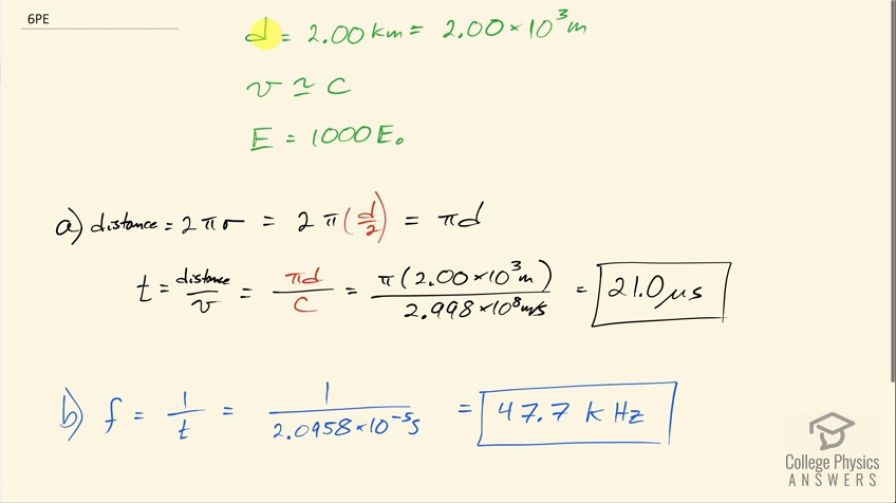 6PE
d = 2.00 km = 2.00 × 10³ m
v ≃ c
E = 1000 E₀
a) distance = 2πr = 2π(d/2) = πd
t = distance/v = πd/c = π(2.00×10³m)/2.998×10⁸m/s = 21.0 μs
b) f = 1/t = 1/2.0958×10⁻⁵s = 47.7 kHz
College Physics
ANSWERS